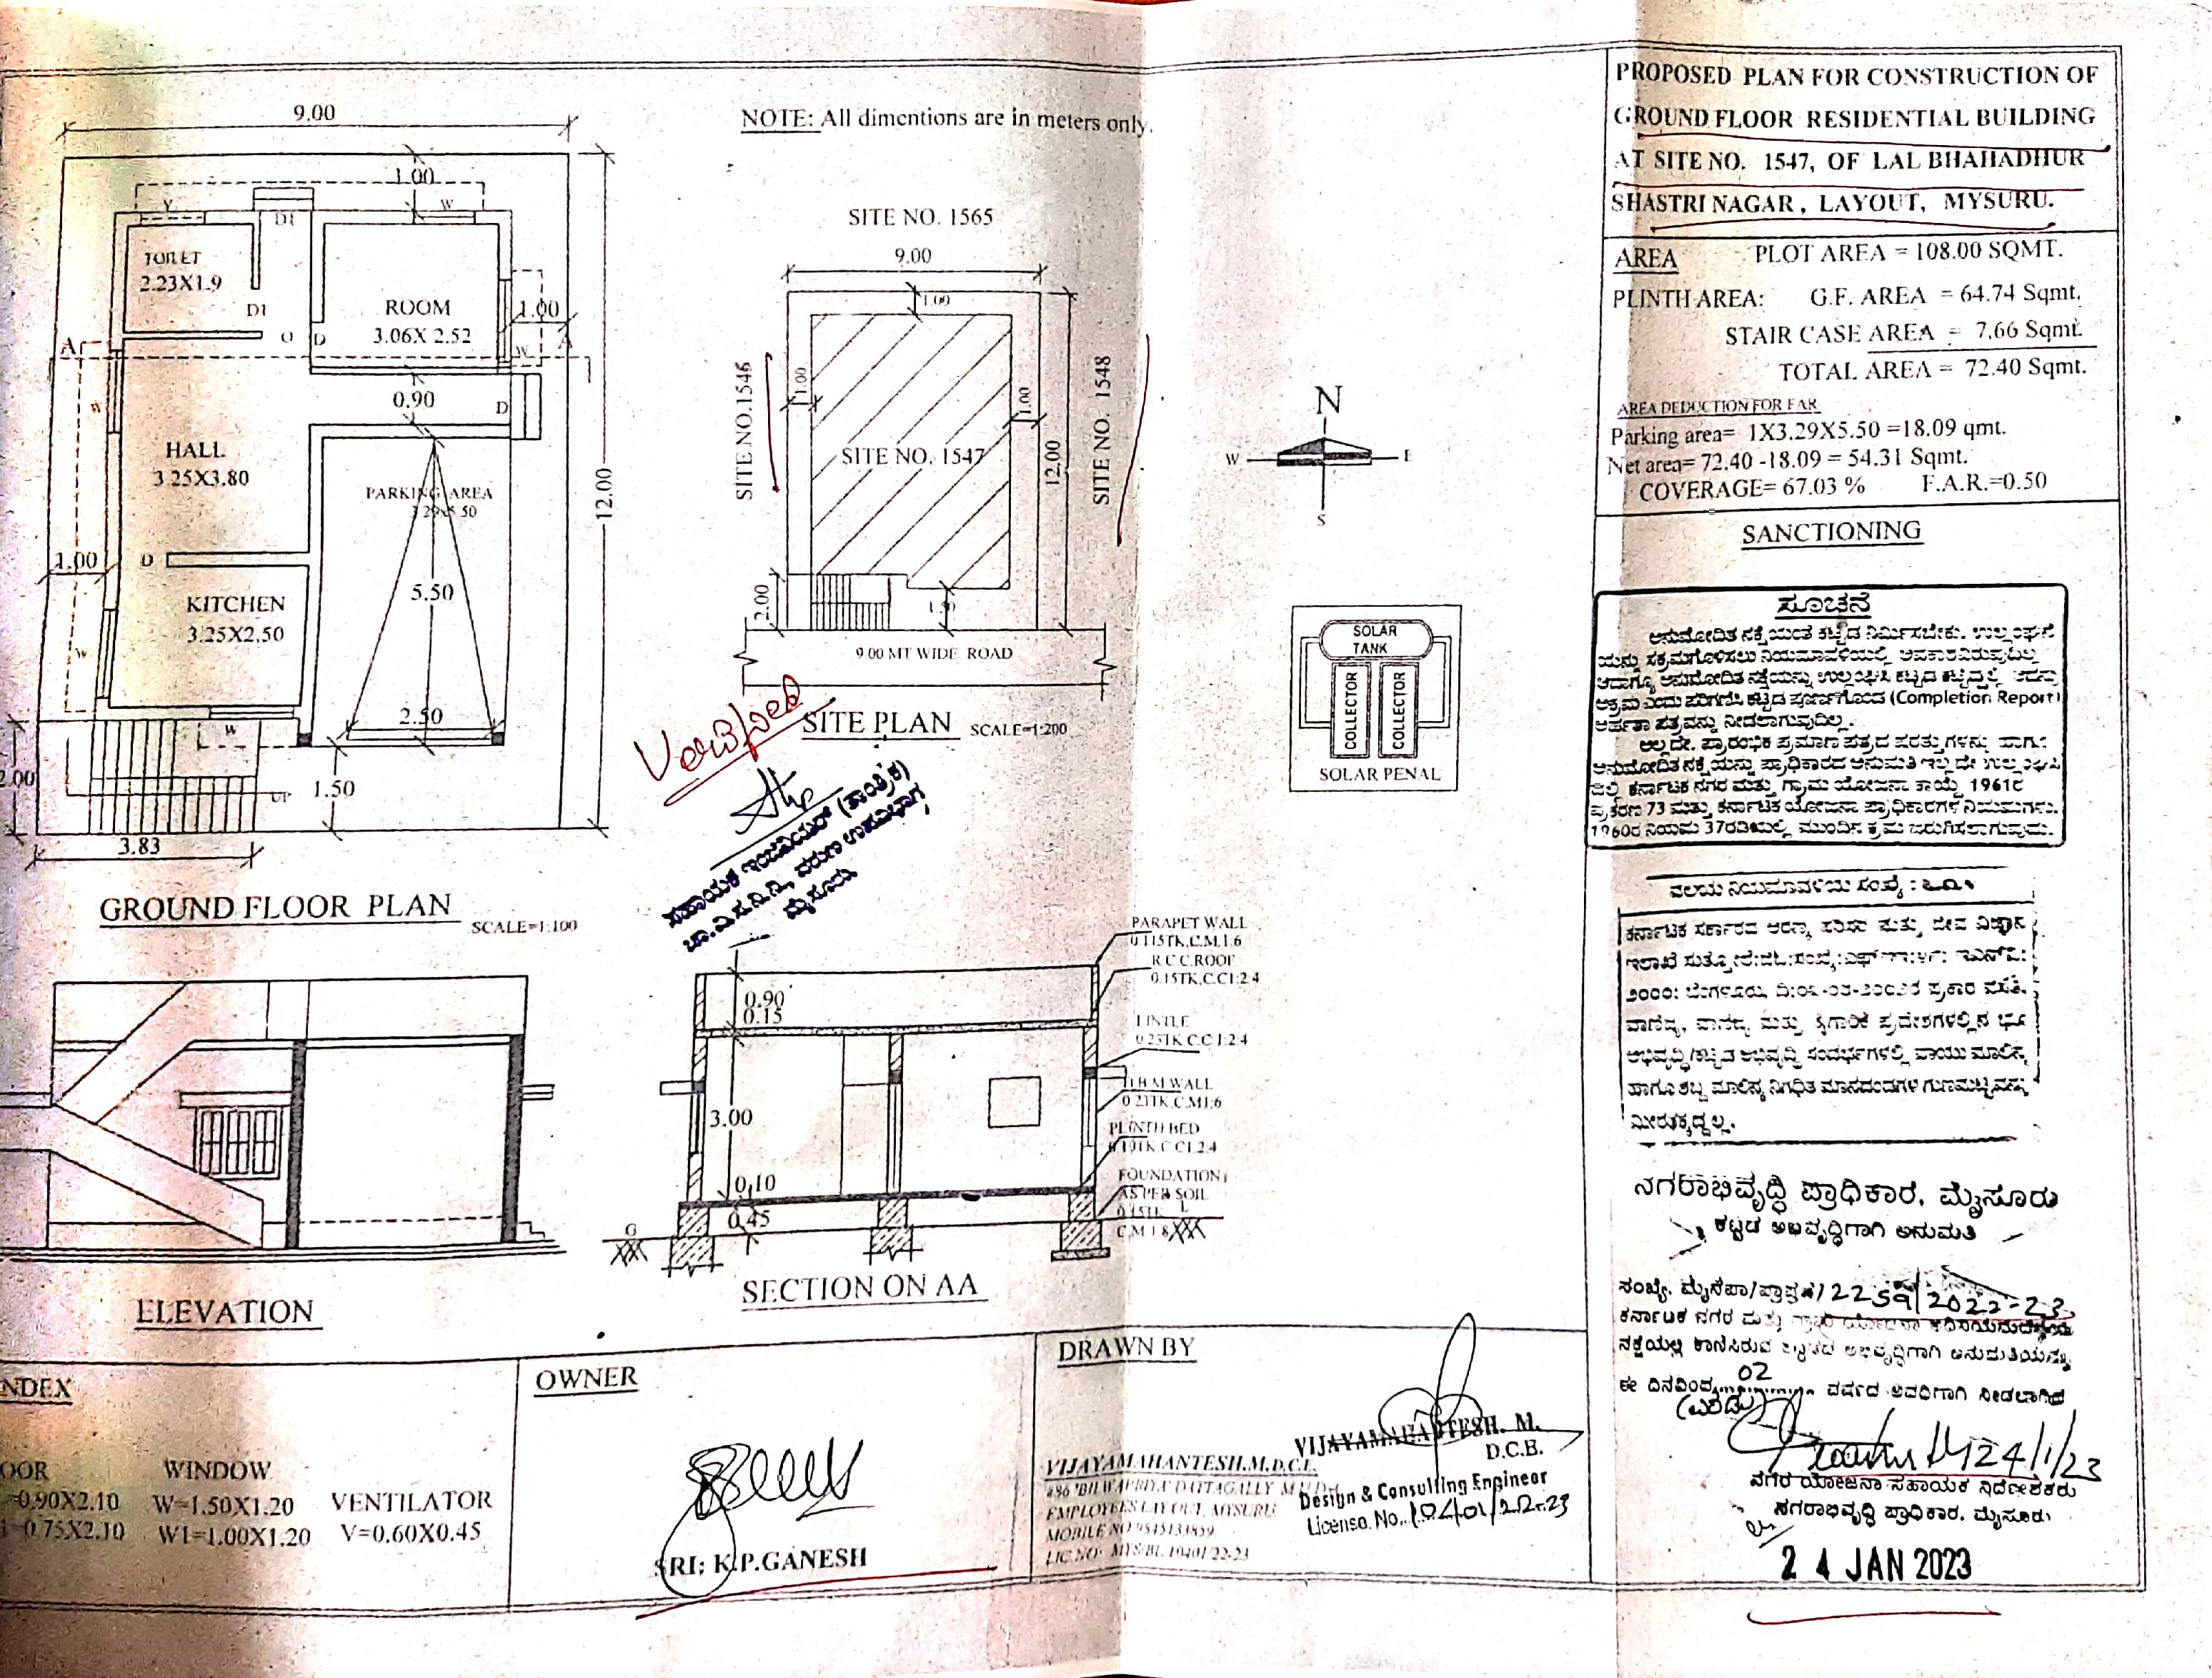 9.00
1.00
V
W
D1
TOILET
2.23X1.9
D1
ROOM
3.06X 2.52
1.00
A
O
D
W
A
0.90
D
W
HALL
3.25X3.80
PARKING AREA
3.29x5.50
12.00
1.00
D
KITCHEN
3.25X2.50
5.50
W
2.50
W
2.00
UP
1.50
3.83
GROUND FLOOR PLAN
SCALE=1:100
ELEVATION
NOTE: All dimentions are in meters only.
SITE NO. 1565
9.00
1.00
SITE NO.1546
1.00
1.00
SITE NO. 1548
SITE NO. 1547
12.00
2.00
1.50
9.00 MT WIDE ROAD
SITE PLAN SCALE=1:200
Verified
ಸಹಾಯಕ ಇಂಜಿನಿಯರ್ (ತಾಂತ್ರಿಕ)
ಚಾ.ವಿ.ಸ.ನಿ.ನಿ, ವರುಣ ಉಪವಿಭಾಗ,
ಮೈಸೂರು
N
W
E
S
SOLAR
TANK
COLLECTOR
COLLECTOR
SOLAR PENAL
PARAPET WALL
0.115TK,C.M.1:6
R.C.C.ROOF
0.15TK,C.C1:2:4
LINTLE
0.23TK C.C.1:2:4
B.M WALL
0.23TK,C.M1:6
PLINTH BED
0.10TK C C1.2:4
FOUNDATION
AS PER SOIL
L
C.M 1:8
0.90
0.15
3.00
0.10
0.45
G
SECTION ON AA
NDEX
OOR
WINDOW
=0.90X2.10
W=1.50X1.20
VENTILATOR
=0.75X2.10
W1=1.00X1.20
V=0.60X0.45
OWNER
SRI; K.P.GANESH
DRAWN BY
VIJAYAMAHANTESH.M.D.C.E.
EMPLOYEES LAYOUT, MYSURU
LIC.NO: MYS/BL 10401/22-23
VIJAYAMAHANTESH. M.
D.C.E.
Design & Consulting Engineer
License. No. 10401/22-23
PROPOSED PLAN FOR CONSTRUCTION OF
GROUND FLOOR RESIDENTIAL BUILDING
AT SITE NO. 1547, OF LAL BHAHADHUR
SHASTRI NAGAR, LAYOUT, MYSURU.
AREA PLOT AREA = 108.00 SQMT.
PLINTH AREA: G.F. AREA = 64.74 Sqmt.
STAIR CASE AREA = 7.66 Sqmt.
TOTAL AREA = 72.40 Sqmt.
AREA DEDUCTION FOR FAR
Parking area= 1X3.29X5.50 =18.09 qmt.
Net area= 72.40 -18.09 = 54.31 Sqmt.
COVERAGE= 67.03 % F.A.R.=0.50
SANCTIONING
ಸೂಚನೆ
ಅನುಮೋದಿತ ನಕ್ಷೆಯಂತೆ ಕಟ್ಟಡ ನಿರ್ಮಿಸಬೇಕು. ಉಲ್ಲಂಘನೆ
ಯನ್ನು ಸಕ್ರಮಗೊಳಿಸಲು ನಿಯಮಾವಳಿಯಲ್ಲಿ ಅವಕಾಶವಿರುವುದಿಲ್ಲ
ಆದಾಗ್ಯೂ ಅನುಮೋದಿತ ನಕ್ಷೆಯನ್ನು ಉಲ್ಲಂಘಿಸಿ ಕಟ್ಟಡ ಕಟ್ಟಿದ್ದಲ್ಲಿ ಅದನ್ನು
ಅಕ್ರಮ ಎಂದು ಪರಿಗಣಿಸಿ ಕಟ್ಟಡ ಪೂರ್ಣಗೊಂಡ (Completion Report)
ಅರ್ಹತಾ ಪತ್ರವನ್ನು ನೀಡಲಾಗುವುದಿಲ್ಲ.
ಅಲ್ಲದೇ, ಪ್ರಾರಂಭಿಕ ಪ್ರಮಾಣ ಪತ್ರದ ಷರತ್ತುಗಳನ್ನು ಹಾಗೂ
ಅನುಮೋದಿತ ನಕ್ಷೆಯನ್ನು ಪ್ರಾಧಿಕಾರದ ಅನುಮತಿ ಇಲ್ಲದೇ ಉಲ್ಲಂಘಿಸಿ
ದಲ್ಲಿ ಕರ್ನಾಟಕ ನಗರ ಮತ್ತು ಗ್ರಾಮ ಯೋಜನಾ ಕಾಯ್ದೆ 1961ರ
ಪ್ರಕರಣ 73 ಮತ್ತು ಕರ್ನಾಟಕ ಯೋಜನಾ ಪ್ರಾಧಿಕಾರಗಳ ನಿಯಮಗಳು.
1960ರ ನಿಯಮ 37ರಡಿಯಲ್ಲಿ ಮುಂದಿನ ಕ್ರಮ ಜರುಗಿಸಲಾಗುವುದು.
ವಲಯ ನಿಯಮಾವಳಿಯ ಸಂಖ್ಯೆ :
ಕರ್ನಾಟಕ ಸರ್ಕಾರದ ಅರಣ್ಯ ಪರಿಸರ ಮತ್ತು ಜೀವ ವಿಜ್ಞಾನ
ಇಲಾಖೆ
೨೦೦೦: ಬೆಂಗಳೂರು, ಪ್ರಕಾರ ವಸತಿ.
ವಾಣಿಜ್ಯ, ಮತ್ತು ಕೈಗಾರಿಕೆ ಪ್ರದೇಶಗಳಲ್ಲಿನ ಭೂ
ಅಭಿವೃದ್ಧಿ/ಕಟ್ಟಡ ಅಭಿವೃದ್ಧಿ ಸಂದರ್ಭಗಳಲ್ಲಿ ವಾಯು ಮಾಲಿನ್ಯ
ಹಾಗೂ ಶಬ್ದ ಮಾಲಿನ್ಯ ನಿಗಧಿತ ಮಾನದಂಡಗಳ ಗುಣಮಟ್ಟವನ್ನು
ಮೀರತಕ್ಕದ್ದಲ್ಲ.
ನಗರಾಭಿವೃದ್ಧಿ ಪ್ರಾಧಿಕಾರ, ಮೈಸೂರು
ಕಟ್ಟಡ ಅಭಿವೃದ್ಧಿಗಾಗಿ ಅನುಮತಿ
ಸಂಖ್ಯೆ. 2022-23
ಕರ್ನಾಟಕ ನಗರ ಮತ್ತು ಗ್ರಾಮ ಯೋಜನಾ
ನಕ್ಷೆಯಲ್ಲಿ ಕಾಣಿಸಿರುವ ಕಟ್ಟಡದ ಅಭಿವೃದ್ಧಿಗಾಗಿ ಅನುಮತಿಯನ್ನು
ಈ ದಿನದಿಂದ 02 ವರ್ಷದ ಅವಧಿಗಾಗಿ ನೀಡಲಾಗಿದೆ
(ಎರಡು)
24/1/23
ನಗರ ಯೋಜನಾ ಸಹಾಯಕ ನಿರ್ದೇಶಕರು
ನಗರಾಭಿವೃದ್ಧಿ ಪ್ರಾಧಿಕಾರ, ಮೈಸೂರು
24 JAN 2023